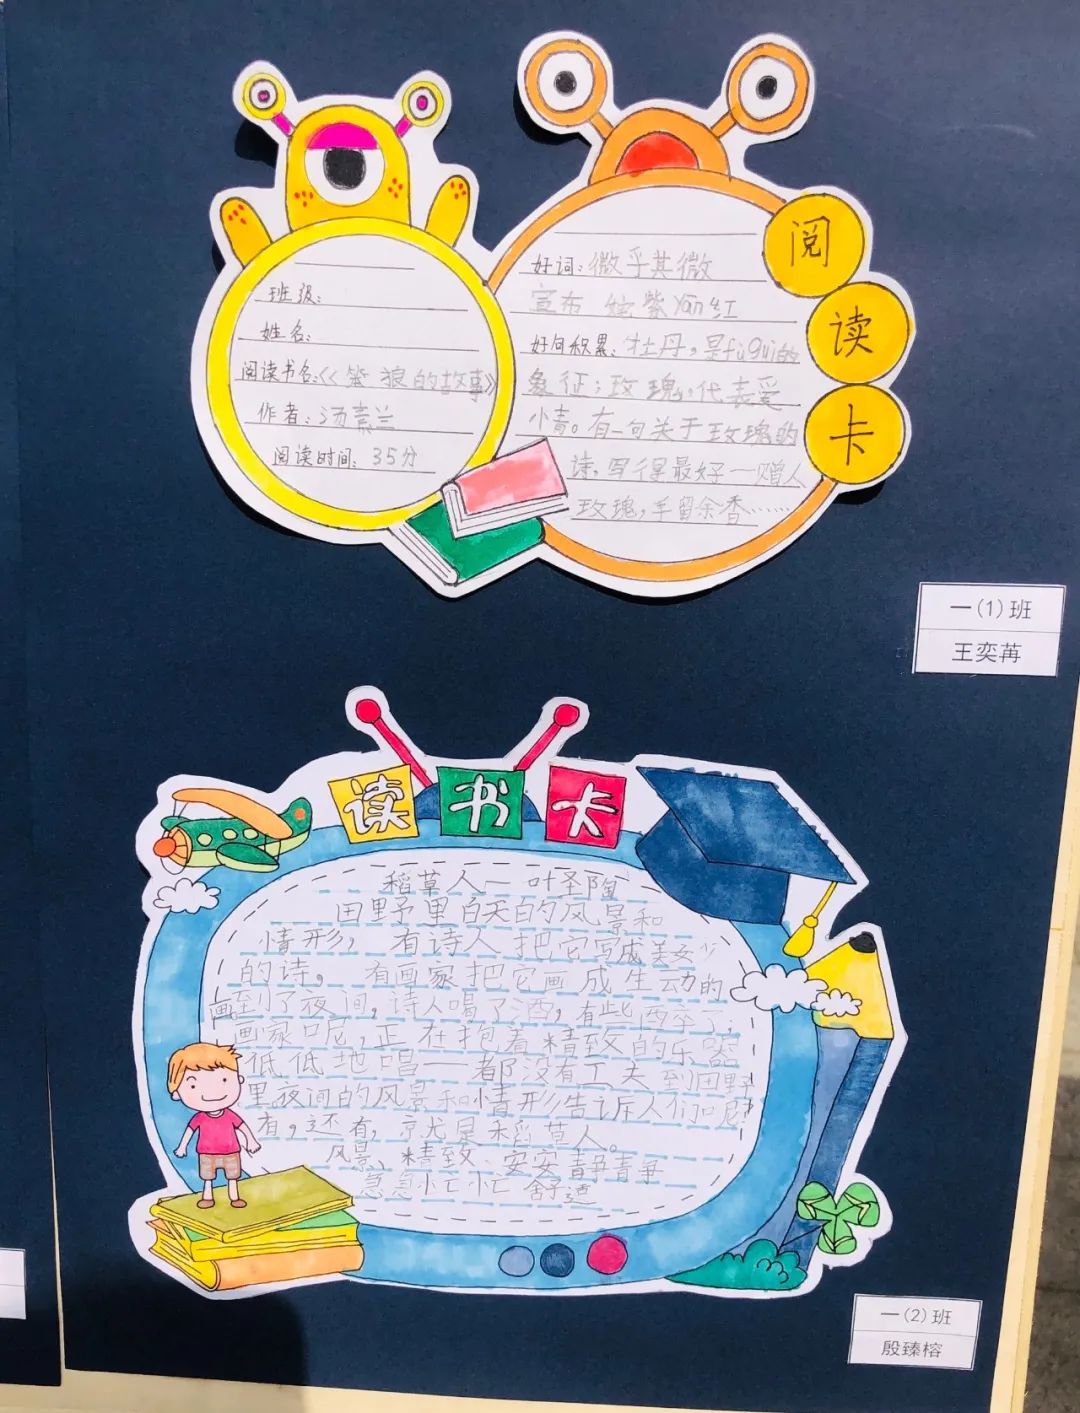 班级:
姓名:
阅读书名:《笨狼的故事》
作者:汤素兰
阅读时间:35分
阅
读
卡
好词:微乎其微
宣布 姹紫yān红
好句积累:牡丹,是fùguì的
象征;玫瑰,代表爱
小青。有一句关于玫瑰的
诗,写得最好—赠人
玫瑰,手留余香……
一(1)班
王奕苒
读书卡
稻草人—叶圣陶
田野里白天的风景和
情形,有诗人把它写成美妙
的诗,有画家把它画成生动的
画到了夜间,诗人喝了酒,有些酉卒了;
画家口尼,正在抱着精致的乐器
低低地唱——都没有工夫到田野
里夜间的风景和情形告诉人们口尼?
有,还有,亨尤是稻草人。
风景、精致、安安静静
急急忙忙 舒适
一(2)班
殷臻榕